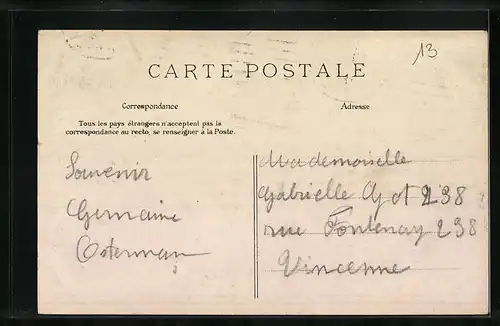 13
CARTE POSTALE
Correspondance
Adresse
Tous les pays étrangers n'acceptent pas la
correspondance au recto, se renseigner à la Poste.
Souvenir
Germaine
Osterman
Mademoiselle
Gabrielle Got 238
rue Fontenay 238
Vincenne